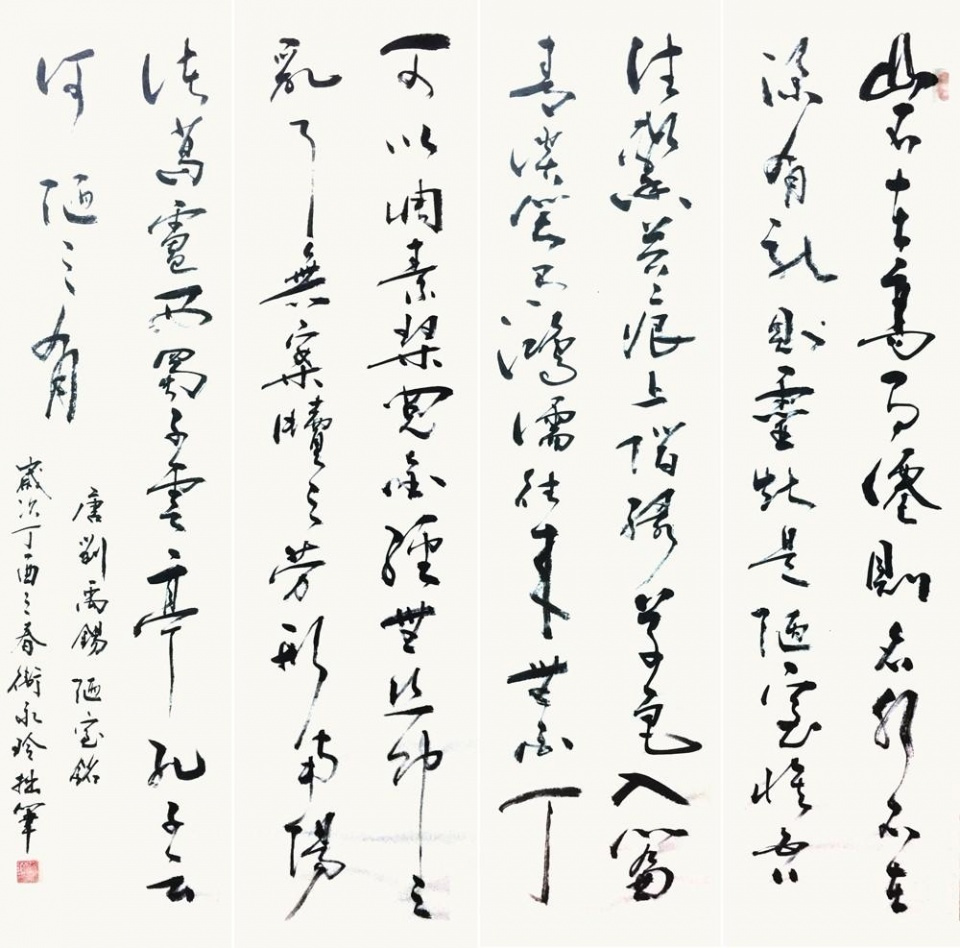 山不在高有僊則名水不在
深有龍則靈斯是陋室惟吾
德馨苔痕上階緑草色入簾
青談笑有鴻儒往来無白丁
可以調素琴閲金經無絲竹之
亂耳無案牘之勞形南陽
諸葛廬西蜀子雲亭孔子云
何陋之有
唐劉禹錫陋室銘
歲次丁酉之春衛永玲拙筆